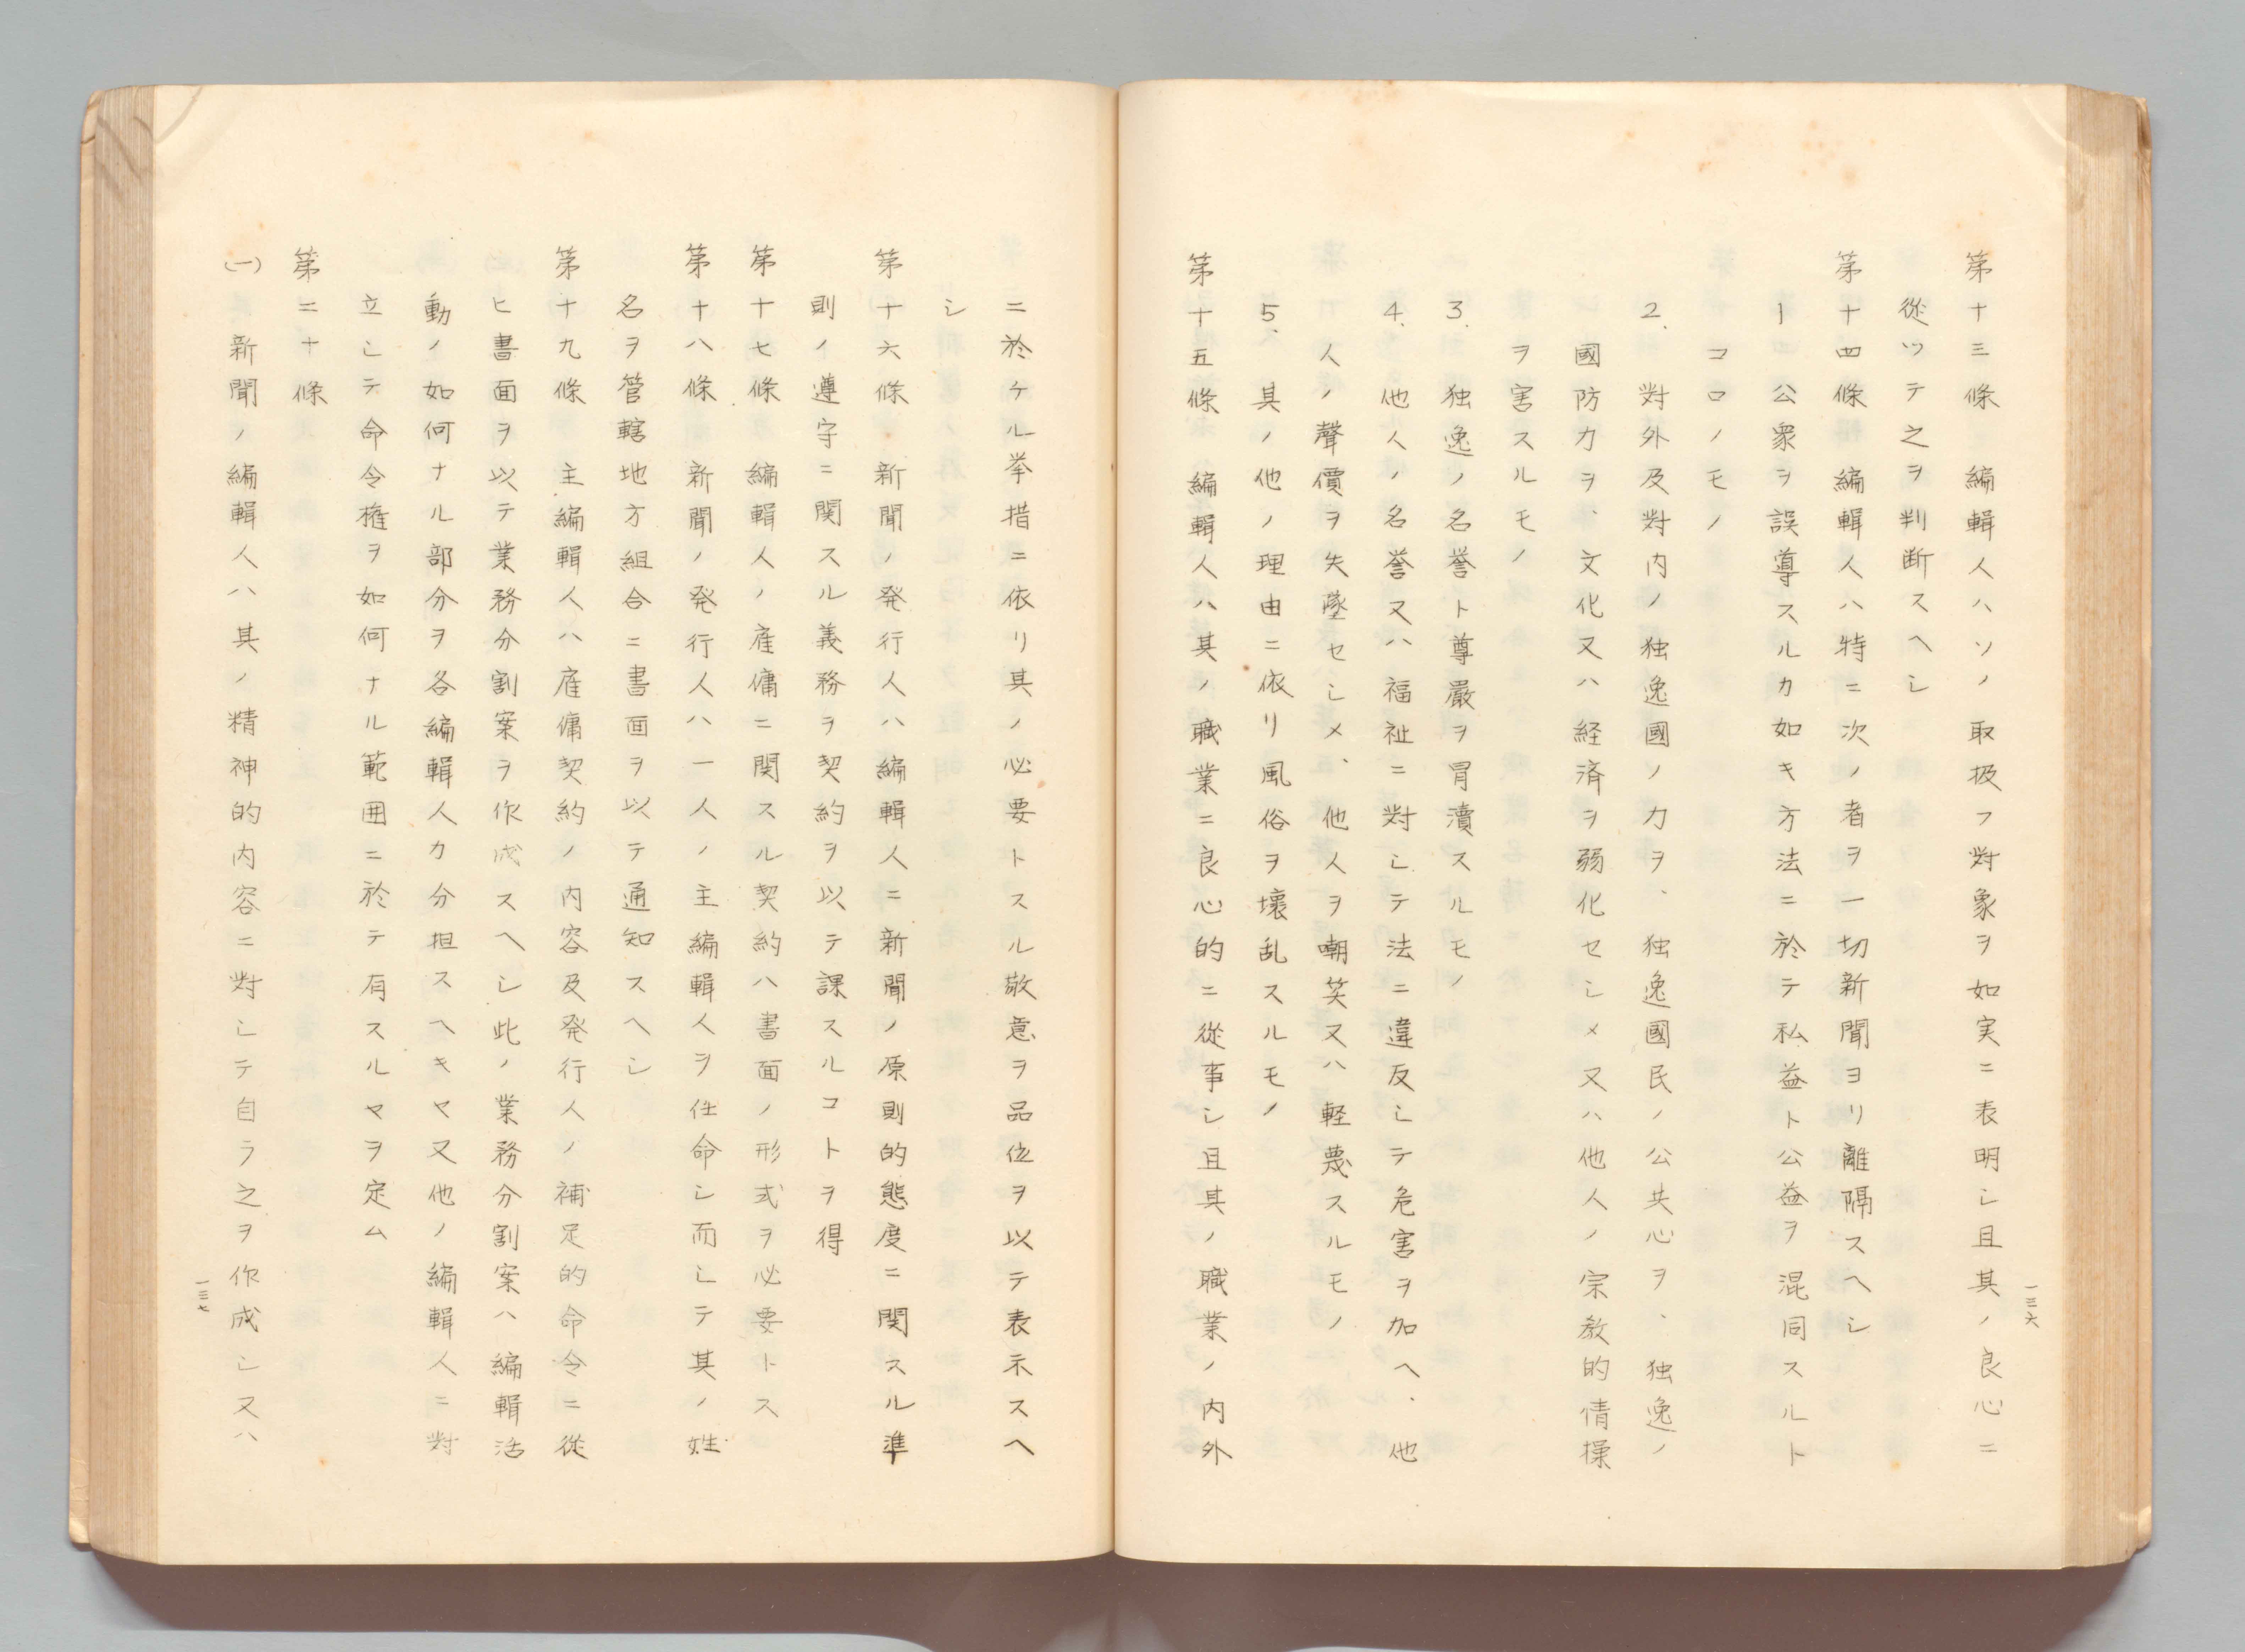 第十三條　編輯人ハソノ取扱フ對象ヲ如実ニ表明シ且其ノ良心ニ
從ツテ之ヲ判断スヘシ
第十四條　編輯人ハ特ニ次ノ者ヲ一切新聞ヨリ離隔スヘシ
1　公衆ヲ誤導スルカ如キ方法ニ於テ私益ト公益ヲ混同スルト
コロノモノ
2.　對外及對内ノ独逸國ノ力ヲ、独逸國民ノ公共心ヲ、独逸ノ
國防力ヲ、文化又ハ経済ヲ弱化セシメ又ハ他人ノ宗教的情操
ヲ害スルモノ
3.　独逸ノ名誉ト尊嚴ヲ冐瀆スルモノ
4.　他人ノ名誉又ハ福祉ニ對シテ法ニ違反シテ危害ヲ加ヘ、他
人ノ聲價ヲ失墜セシメ、他人ヲ嘲笑又ハ軽蔑スルモノ
5、其ノ他ノ理由ニ依リ風俗ヲ壞乱スルモノ
第十五條　編輯人ハ其ノ職業ニ良心的ニ從事シ且其ノ職業ノ内外
一三六
ニ於ケル挙措ニ依リ其ノ必要トスル敬意ヲ品位ヲ以テ表示スヘ
シ
第十六條　新聞ノ発行人ハ編輯人ニ新聞ノ原則的態度ニ関スル準
則ノ遵守ニ関スル義務ヲ契約ヲ以テ課スルコトヲ得
第十七條　編輯人ノ雇傭ニ関スル契約ハ書面ノ形式ヲ必要トス
第十八條　新聞ノ発行人ハ一人ノ主編輯人ヲ任命シ而シテ其ノ姓
名ヲ管轄地方組合ニ書面ヲ以テ通知スヘシ
第十九條　主編輯人ハ雇傭契約ノ内容及発行人ノ補足的命令ニ從
ヒ書面ヲ以テ業務分割案ヲ作成スヘシ此ノ業務分割案ハ編輯活
動ノ如何ナル部分ヲ各編輯人カ分担スヘキヤ又他ノ編輯人ニ對
立シテ命令権ヲ如何ナル範囲ニ於テ有スルヤヲ定ム
第二十條
(一)　新聞ノ編輯人ハ其ノ精神的内容ニ對シテ自ラ之ヲ作成シ又ハ
一三七